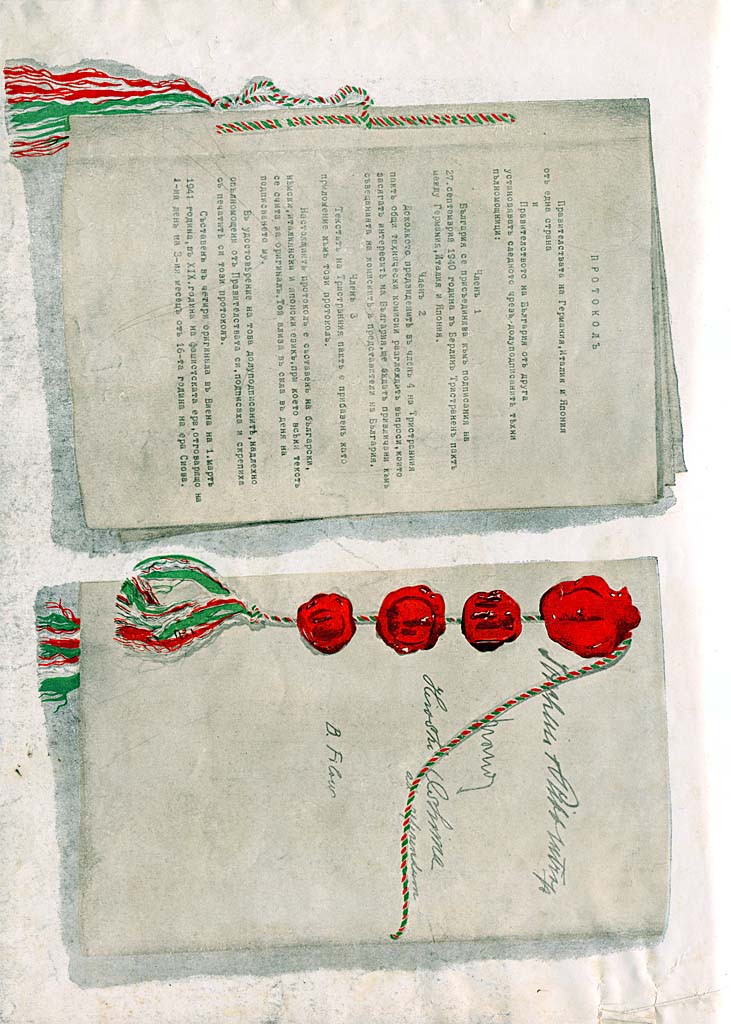 ПРОТОКОЛЪ
Правителствата на Германия, Италия и Япония
отъ една страна
и
Правителството на България отъ друга
установяватъ следното чрезъ долуподписанитѣ тѣхни
пълномощници:
Членъ 1
България се присъединява къмъ подписания на
27.септемврий 1940 година въ Берлинъ Тристраненъ пактъ
между Германия, Италия и Япония.
Членъ 2
Доколкото предвиденитѣ въ членъ 4 на Тристранния
пактъ общи технически комисии разглеждатъ въпроси, които
засягатъ интереситѣ на България, ще бѫдатъ привличани къмъ
съвещанията на комисиитѣ и представители на България.
Членъ 3
Текстътъ на Тристранния пактъ е прибавенъ като
приложение къмъ този протоколъ.
Настоящиятъ протоколъ е съставенъ на български,
нѣмски, италиянски и японски езикъ, при което всѣки текстъ
се счита за оригиналъ. Той влиза въ сила въ деня на
подписването му.
Въ удостовѣрение на това долуподписанитѣ, надлежно
опълномощени отъ Правителствата си, подписаха и скрепиха
съ печатитѣ си този протоколъ.
Съставенъ въ четири оригинала въ Виена на 1.мартъ
1941 година, въ XIX.година на фашистката ера, отговарящо на
1-ия день на 3-ия месецъ отъ 16-та година на ера Сиова.
Ciano
Hiroshi Oshima
ad referendum
B. Filow